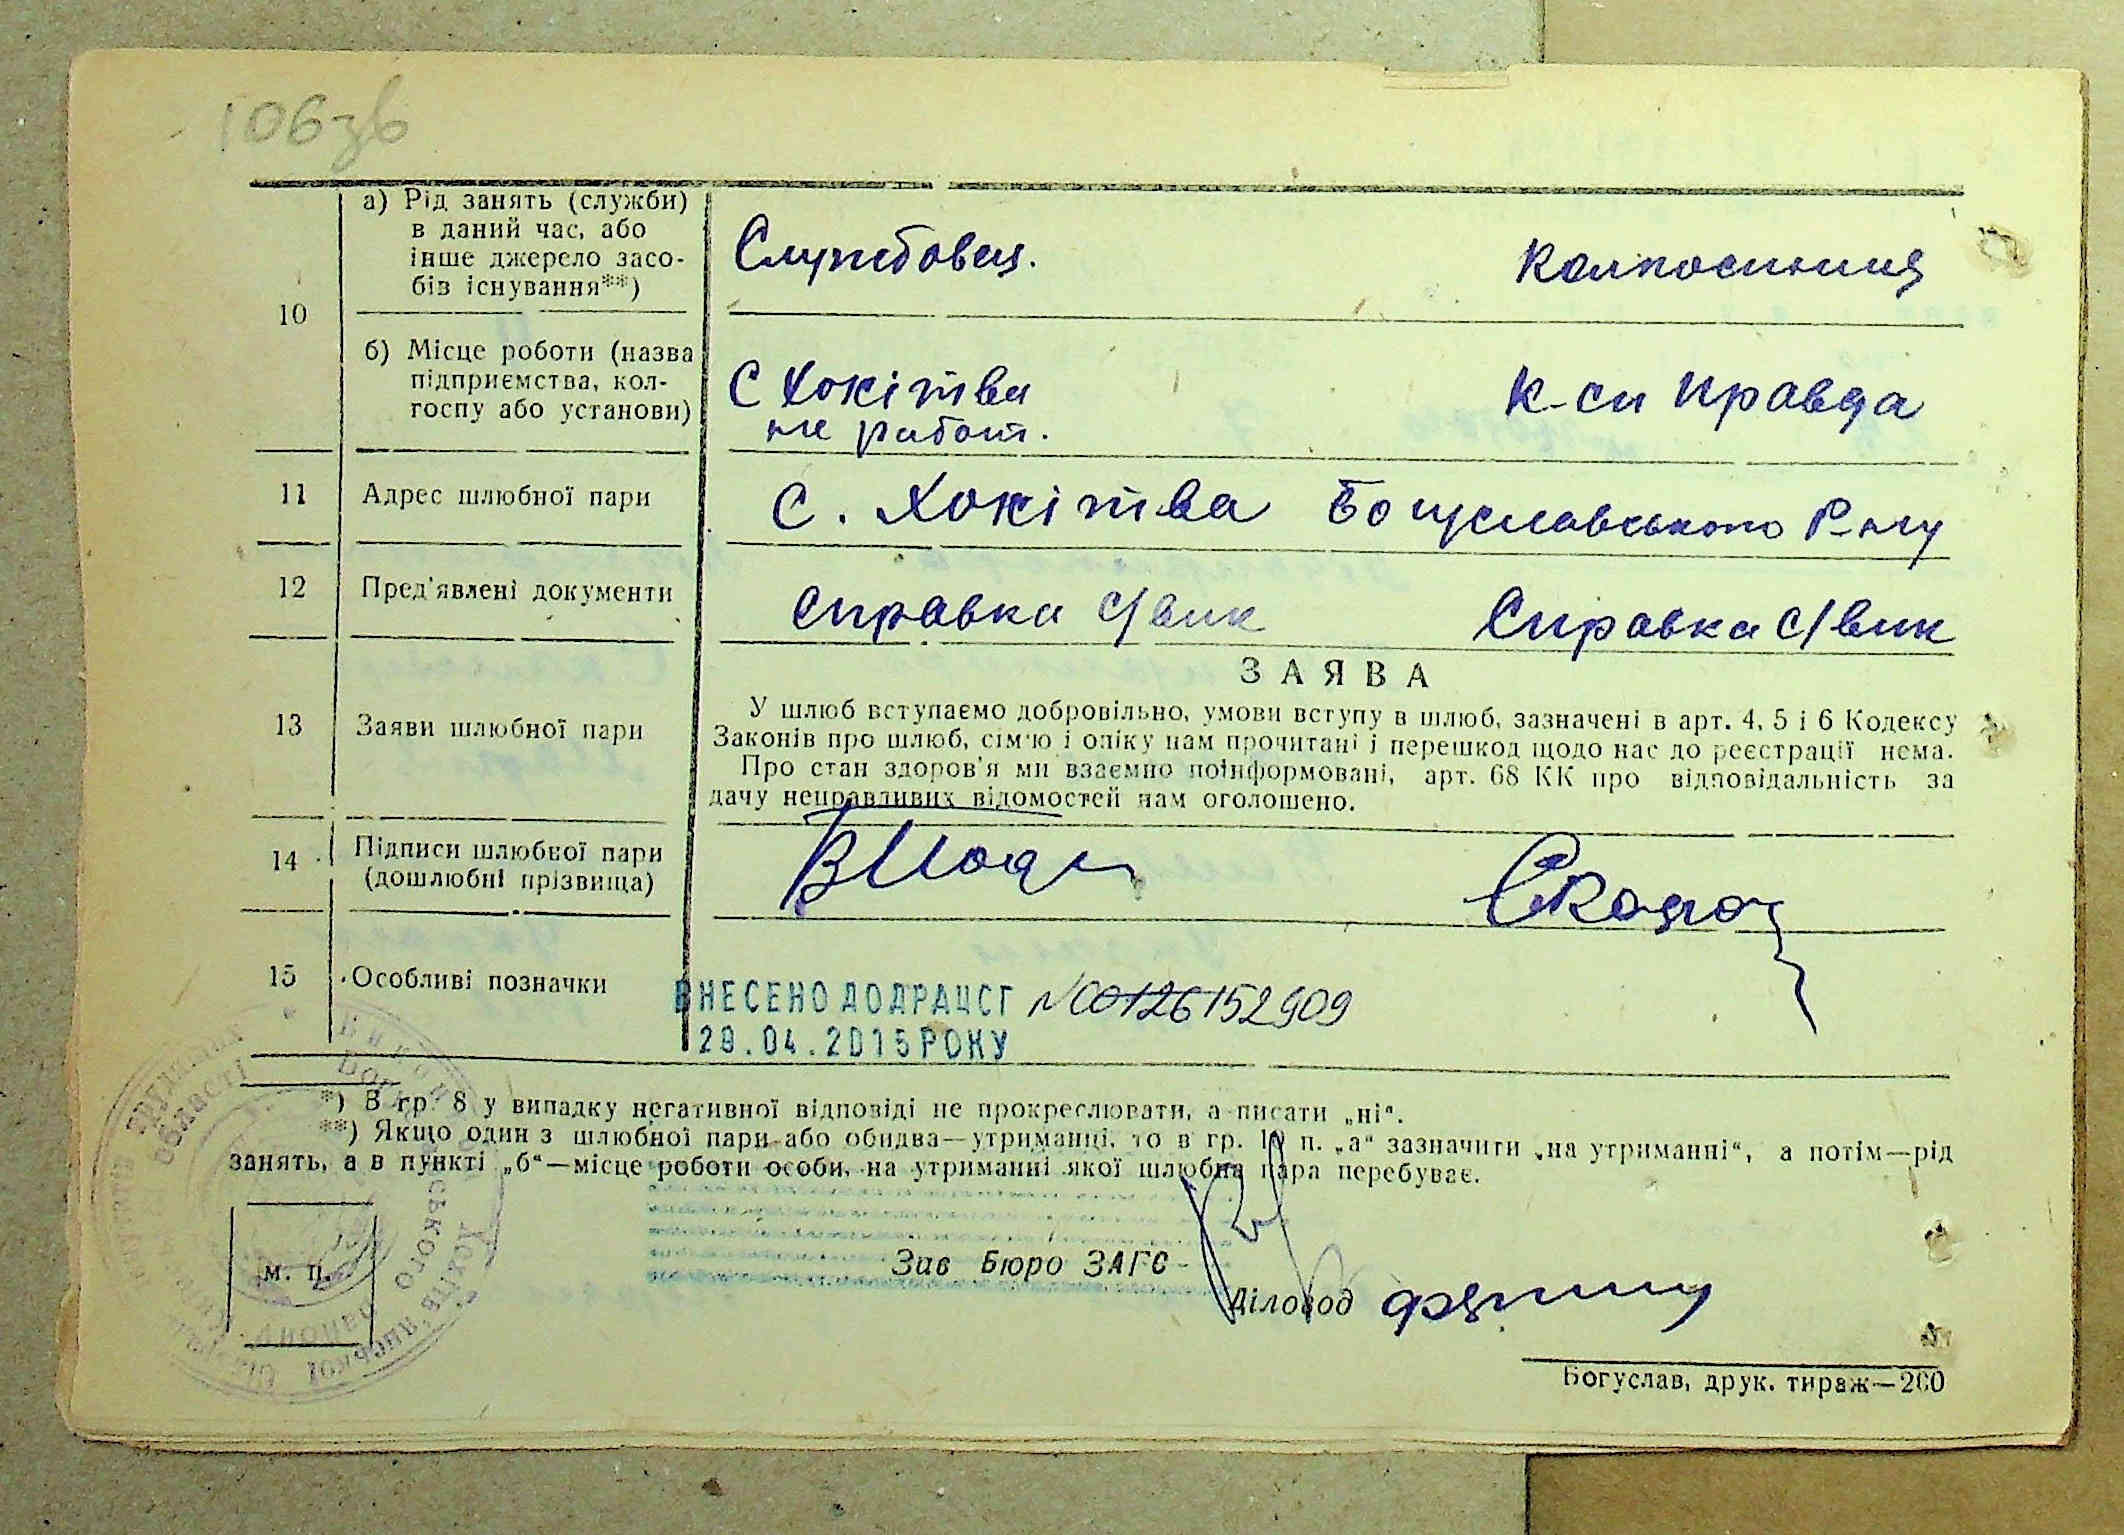 106зв
10
а) Рід занять (служби)
в даний час, або
інше джерело засо-
бів існування**)
Службовец.
Колгоспниця
б) Місце роботи (назва
підприємства, кол-
госпу або установи)
С Хохітва
не работ.
К-сп Правда
11
Адрес шлюбної пари
С. Хохітва Богуславського Р-ну
12
Пред'явлені документи
Справка с/вик
Справка с/вик
13
Заяви шлюбної пари
ЗАЯВА
У шлюб вступаємо добровільно, умови вступу в шлюб, зазначені в арт. 4, 5 і 6 Кодексу
Законів про шлюб, сім'ю і опіку нам прочитані і перешкод щодо нас до реєстрації нема.
Про стан здоров'я ми взаємно поінформовані, арт. 68 КК про відповідальність за
дачу неправдивих відомостей нам оголошено.
14
Підписи шлюбної пари
(дошлюбні прізвища)
15
Особливі позначки
ВНЕСЕНО ДО ДРАЦСГ №00126152909
29.04.2015 РОКУ
*) В гр. 8 у випадку негативної відповіді не прокреслювати, а писати „ні“.
**) Якщо один з шлюбної пари або обидва—утриманці, то в гр. 10 п. „а“ зазначити „на утриманні“, а потім—рід
занять, а в пункті „б“—місце роботи особи, на утриманні якої шлюбна пара перебуває.
м. п.
Зав Бюро ЗАГС
Діловод
Богуслав, друк. тираж—200